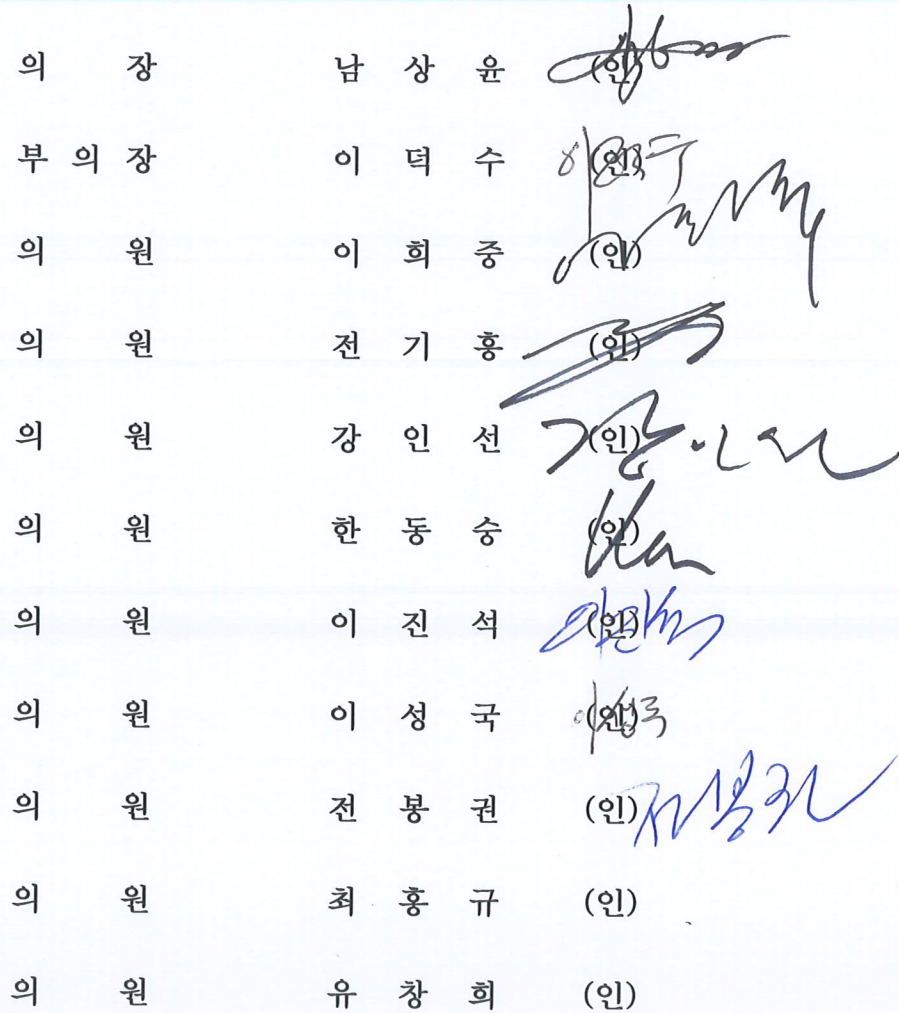 의 장 남 상 윤 (인)
부 의 장 이 덕 수 (인) 이덕수
의 원 이 희 중 (인)
의 원 전 기 흥 (인)
의 원 강 인 선 (인) 강인선
의 원 한 동 숭 (인)
의 원 이 진 석 (인) 이진석
의 원 이 성 국 (인) 이성국
의 원 전 봉 권 (인) 전봉권
의 원 최 홍 규 (인)
의 원 유 창 희 (인)